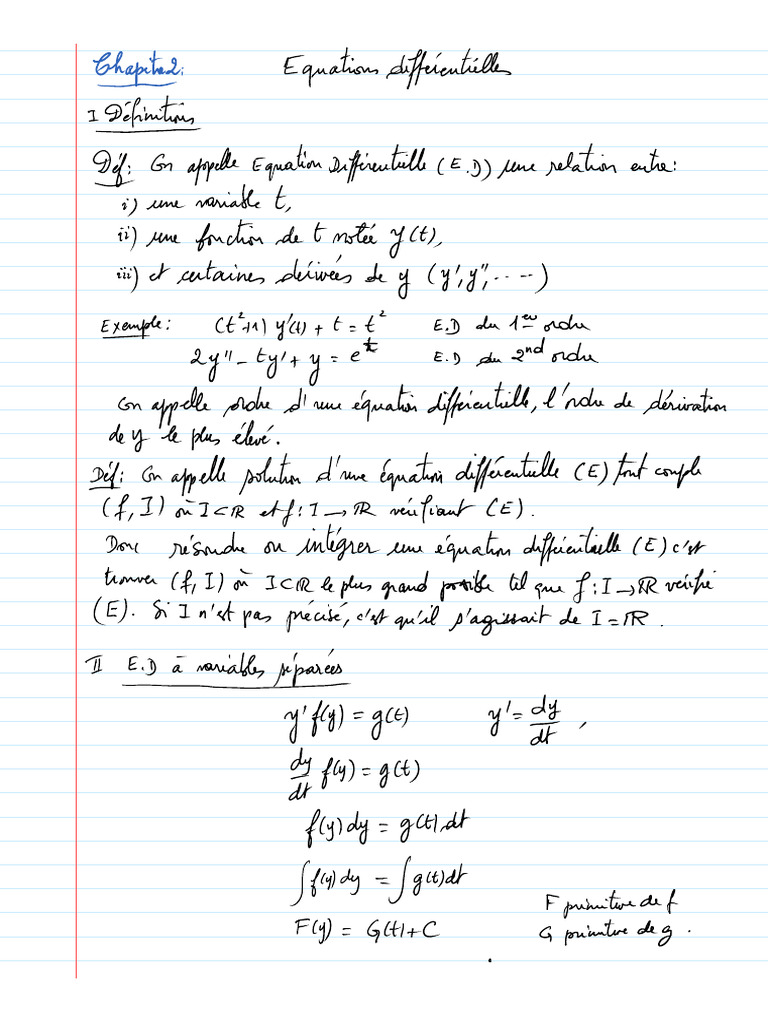 Chapitre2: Equations différentielles
I Définitions
Déf: On appelle Equation Différentielle (E.D) une relation entre:
i) une variable t,
ii) une fonction de t notée y(t),
iii) et certaines dérivées de y (y', y'', ....)
Exemple: (t²+1) y'(t) + t = t² E.D du 1er ordre
2y'' - ty' + y = e^t E.D du 2nd ordre
On appelle ordre d'une équation différentielle, l'ordre de dérivation
de y le plus élevé.
Déf: On appelle solution d'une équation différentielle (E) tout couple
(f, I) où I⊂ℝ et f: I → ℝ vérifiant (E).
Donc résoudre ou intégrer une équation différentielle (E) c'est
trouver (f, I) où I⊂ℝ le plus grand possible tel que f: I → ℝ vérifie
(E). Si I n'est pas précisé, c'est qu'il s'agissait de I = ℝ.
II E.D à variables séparées
y' f(y) = g(t) y' = dy/dt ,
dy/dt f(y) = g(t)
f(y) dy = g(t).dt
∫f(y) dy = ∫g(t) dt
F primitive de f
F(y) = G(t) + C
G primitive de g.